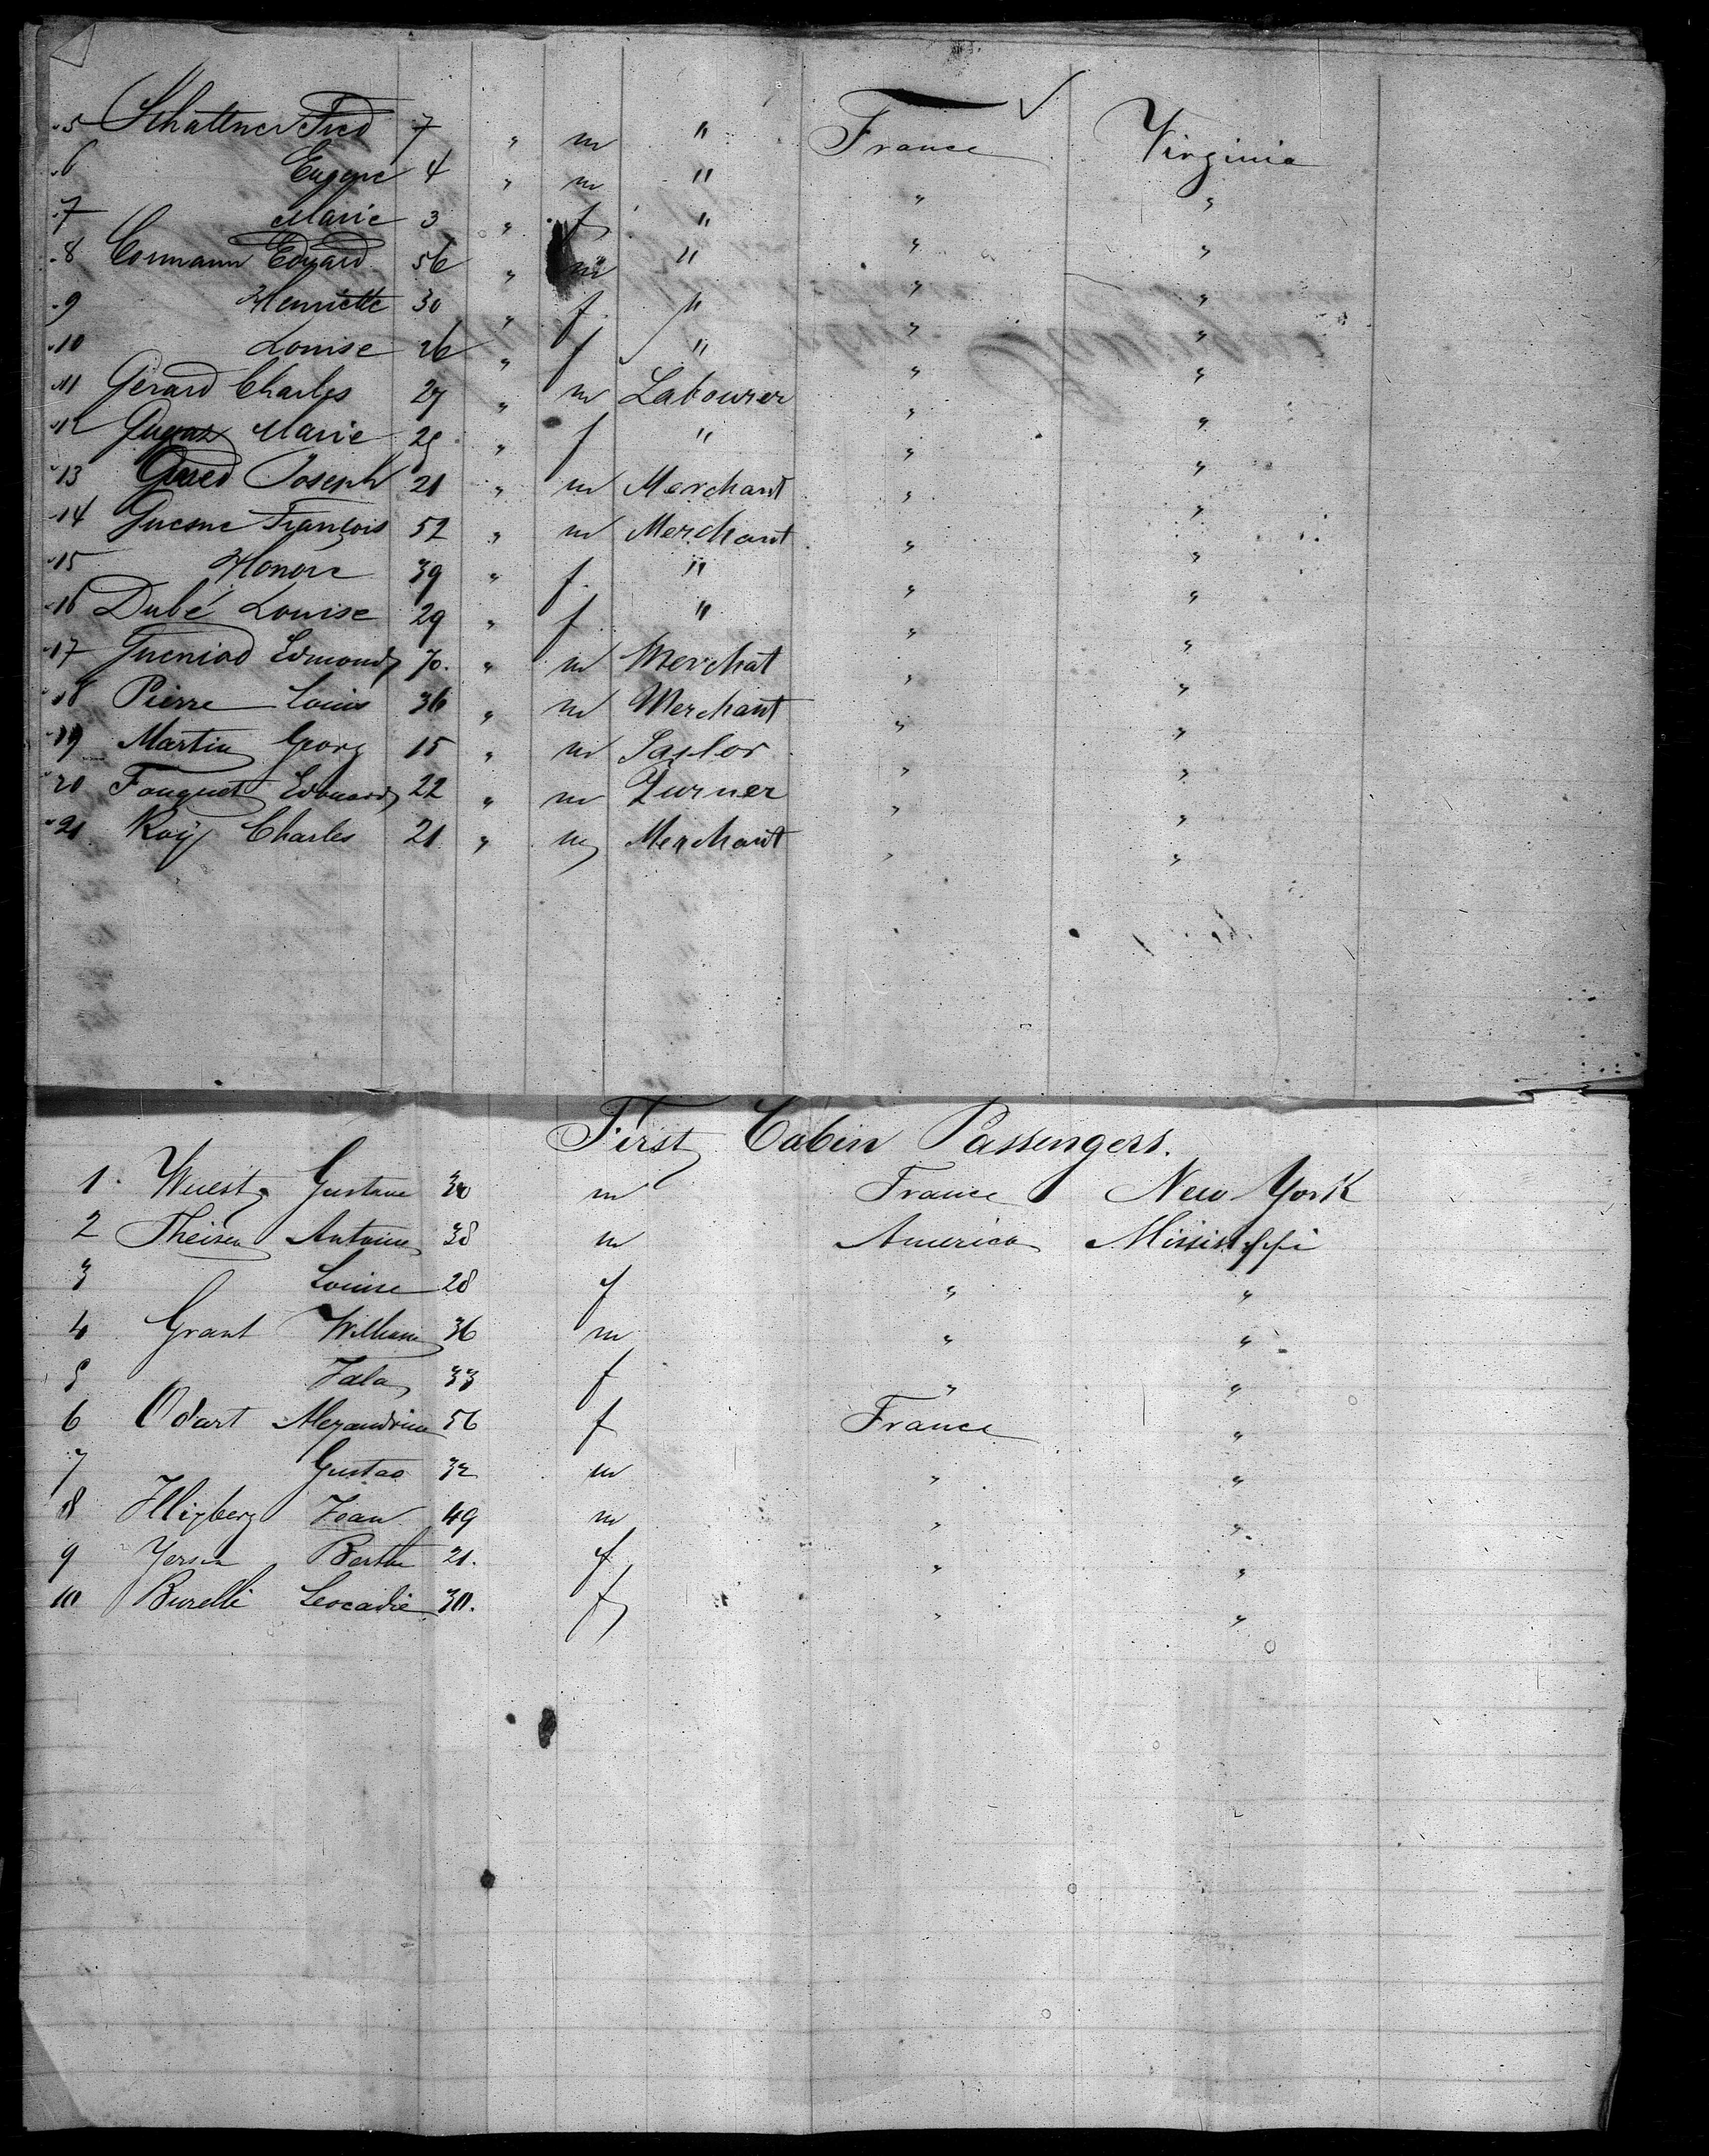 5 Schattner Fred 7 " m " France Virginia
6 Eugene 4 " m " " "
7 Marie 3 " f " " "
8 Cormann Edward 56 " m " " "
9 Henriette 30 " f " " "
10 Louise 26 " f " " "
11 Gerard Charles 27 " m Labourer " "
12 Marie 25 " f " " "
13 Joseph 21 " m Merchant " "
14 Guesne François 52 " m Merchant " "
15 Honore 39 " f " " "
16 Dubé Louise 29 " f " " "
17 Gueniad Edmond 70. " m Merchat " "
18 Pierre Louis 36 " m Merchant " "
19 Martin Georg 15 " m " "
20 Fouquet Edouard 22 " m Turner " "
21 Roÿ Charles 21 " m Merchant " "
First Cabin Passengers.
1 Wuest Gustave 30 m France New York
2 Theisen Antoine 38 m America Missisippi
3 Louise 28 f " "
4 Grant William 36 m " "
5 33 f " "
6 Odart Alexandrine 56 f France "
7 Gustav 32 m " "
8 Jean 49 m " "
9 Yersin Berthe 21. f " "
10 Burelli Leocadie 30. f " "